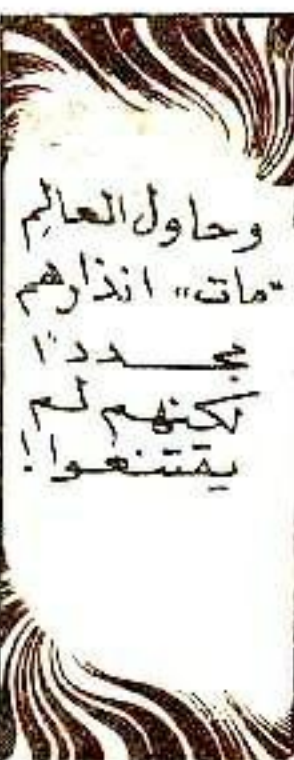 وحاول العالِم
"مات" انذارهم
مجــددًا
لكنهم لــم
يقتنعـوا!